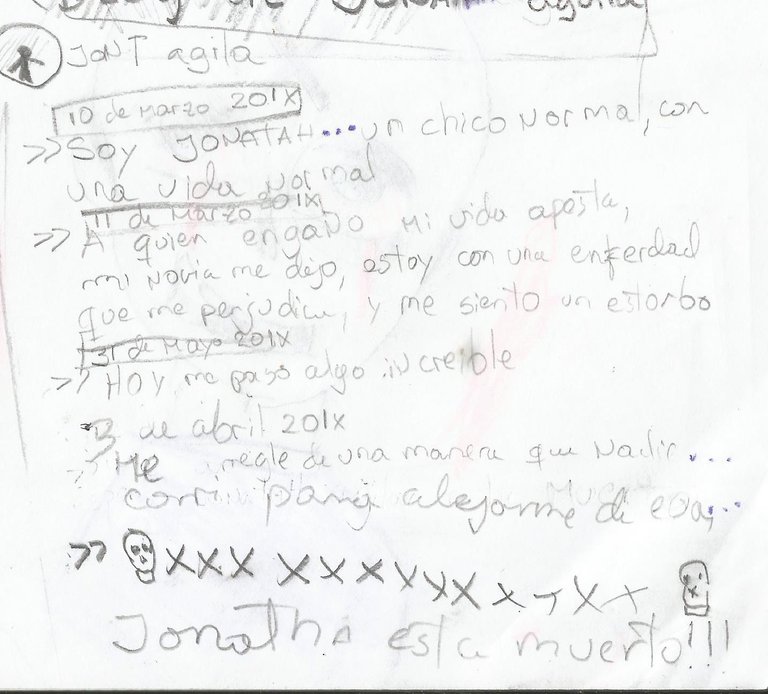 JONT agila
10 de Marzo 201X
>> Soy JONATAH... un chico Normal, con
una vida Normal
11 de Marzo 201X
>> A quien engaño mi vida apesta,
mi Novia me dejo, estoy con una enferdad
que me perjudica, y me siento un estorbo
31 de Mayo 201X
>> HOY me paso algo increible
3 de abril 201X
>> Me de una manera que Nadie...
corri para alejarme de eso,...
>> XXX XXXXXXX X X X X
Jonatha esta muerto!!!